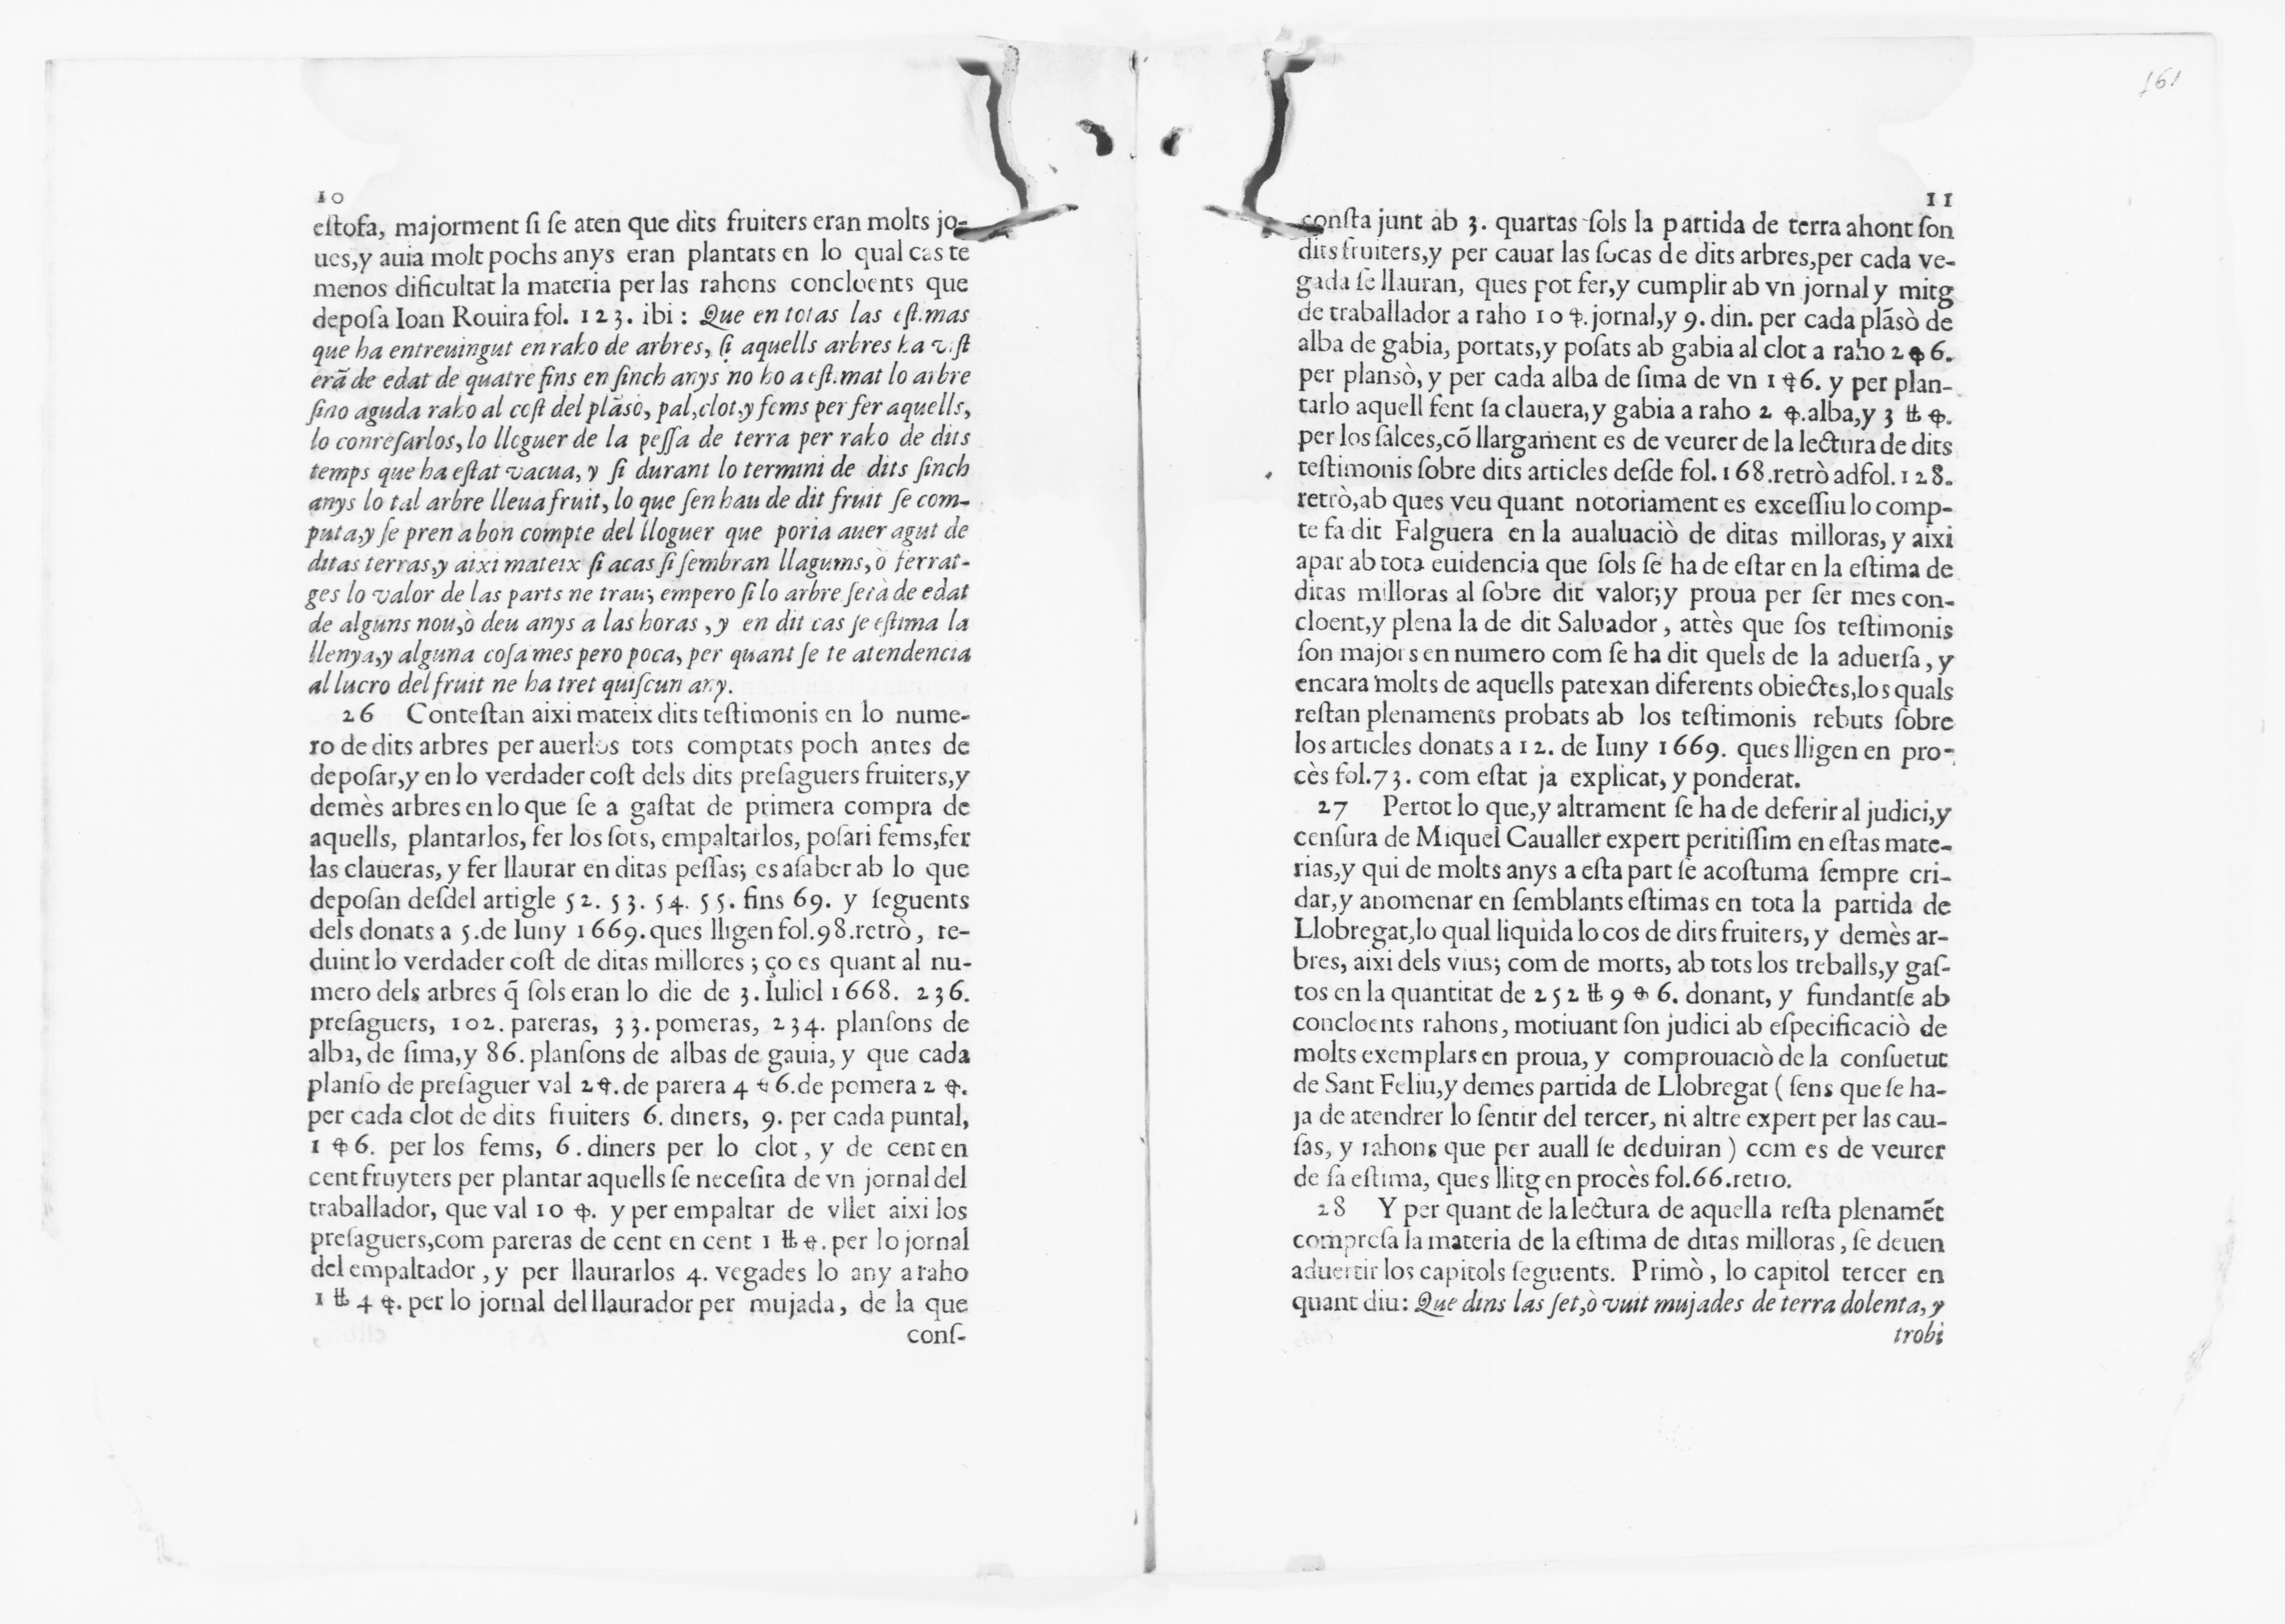 10
eſtofa, majorment ſi ſe aten que dits fruiters eran molts jo-
ues,y auia molt pochs anys eran plantats en lo qual cas te
menos dificultat la materia per las rahons concloents que
depoſa Ioan Rouira fol. 123. ibi: Que en totas las eſtimas
que ha entreuingut en raho de arbres, ſi aquells arbres ha viſt
erã de edat de quatre fins en ſinch anys no ho a eſtimat lo arbre
ſino aguda raho al coſt del plãsò, pal,clot,y fems per fer aquells,
lo conreſarlos, lo lloguer de la peſſa de terra per raho de dits
temps que ha eſtat vacua, y ſi durant lo termini de dits ſinch
anys lo tal arbre lleua fruit, lo que ſen hau de dit fruit ſe com-
puta,y ſe pren a bon compte del lloguer que poria auer agut de
ditas terras,y aixi mateix ſi acas ſi ſembran llagums,ò ferrat-
ges lo valor de las parts ne trau; empero ſi lo arbre ſerà de edat
de alguns nou,ò deu anys a las horas , y en dit cas ſe eſtima la
llenya,y alguna coſa mes pero poca, per quant ſe te atendencia
al lucro del fruit ne ha tret quiſcun any.
26 Conteſtan aixi mateix dits teſtimonis en lo nume-
ro de dits arbres per auerlos tots comptats poch antes de
depoſar,y en lo verdader coſt dels dits preſaguers fruiters,y
demès arbres en lo que ſe a gaſtat de primera compra de
aquells, plantarlos, fer los ſots, empaltarlos, poſari fems,fer
las claueras, y fer llaurar en ditas peſſas; es aſaber ab lo que
depoſan deſdel artigle 52. 53. 54. 55. fins 69. y ſeguents
dels donats a 5.de Iuny 1669.ques lligen fol.98.retrò, re-
duint lo verdader coſt de ditas millores ; ço es quant al nu-
mero dels arbres q̃ ſols eran lo die de 3. Iuliol 1668. 236.
preſaguers, 102. pareras, 33. pomeras, 234. planſons de
alba, de ſima,y 86. planſons de albas de gauia, y que cada
planſo de preſaguer val 2 ꝑ. de parera 4 ꝑ 6.de pomera 2 ꝑ.
per cada clot de dits fruiters 6. diners, 9. per cada puntal,
1 ꝑ 6. per los fems, 6. diners per lo clot, y de cent en
cent fruyters per plantar aquells ſe neceſita de vn jornal del
traballador, que val 10 ꝑ. y per empaltar de vllet aixi los
preſaguers,com pareras de cent en cent 1 ₶ ꝑ. per lo jornal
del empaltador , y per llaurarlos 4. vegades lo any a raho
1 ₶ 4 ꝑ. per lo jornal del llaurador per mujada, de la que
conſ-
161
11
conſta junt ab 3. quartas ſols la partida de terra ahont ſon
dits fruiters,y per cauar las ſocas de dits arbres,per cada ve-
gada ſe llauran, ques pot fer,y cumplir ab vn jornal y mitg
de traballador a raho 10 ꝑ. jornal,y 9. din. per cada plãsò de
alba de gabia, portats,y poſats ab gabia al clot a raho 2 ꝑ 6.
per plansò, y per cada alba de ſima de vn 1 ꝑ 6. y per plan-
tarlo aquell fent ſa clauera, y gabia a raho 2 ꝑ.alba,y 3 ₶ ꝑ.
per los ſalces,cõ llargament es de veurer de la lectura de dits
teſtimonis ſobre dits articles deſde fol. 168.retrò adfol. 128.
retrò,ab ques veu quant notoriament es exceſſiu lo comp-
te fa dit Falguera en la aualuaciò de ditas milloras, y aixi
apar ab tota euidencia que ſols ſe ha de eſtar en la eſtima de
ditas milloras al ſobre dit valor;y proua per ſer mes con-
cloent,y plena la de dit Saluador , attès que ſos teſtimonis
ſon majors en numero com ſe ha dit quels de la aduerſa, y
encara molts de aquells patexan diferents obiectes,los quals
reſtan plenaments probats ab los teſtimonis rebuts ſobre
los articles donats a 12. de Iuny 1669. ques lligen en pro-
cès fol.73. com eſtat ja explicat, y ponderat.
27 Pertot lo que,y altrament ſe ha de deferir al judici,y
cenſura de Miquel Caualler expert peritiſſim en eſtas mate-
rias,y qui de molts anys a eſta part ſe acoſtuma ſempre cri-
dar,y anomenar en ſemblants eſtimas en tota la partida de
Llobregat,lo qual liquida lo cos de dits fruiters, y demès ar-
bres, aixi dels vius; com de morts, ab tots los treballs,y gaſ-
tos en la quantitat de 252 ₶ 9 ꝑ 6. donant, y fundantſe ab
concloents rahons, motiuant ſon judici ab eſpecificaciò de
molts exemplars en proua, y comprouaciò de la conſuetut
de Sant Feliu,y demes partida de Llobregat ( ſens que ſe ha-
ja de atendrer lo ſentir del tercer, ni altre expert per las cau-
ſas, y rahons que per auall ſe deduiran ) com es de veurer
de ſa eſtima, ques llitg en procès fol.66.retro.
28 Y per quant de la lectura de aquella reſta plenamẽt
compreſa la materia de la eſtima de ditas milloras, ſe deuen
aduertir los capitols ſeguents. Primò, lo capitol tercer en
quant diu: Que dins las ſet,ò vuit mujades de terra dolenta, y
trobi